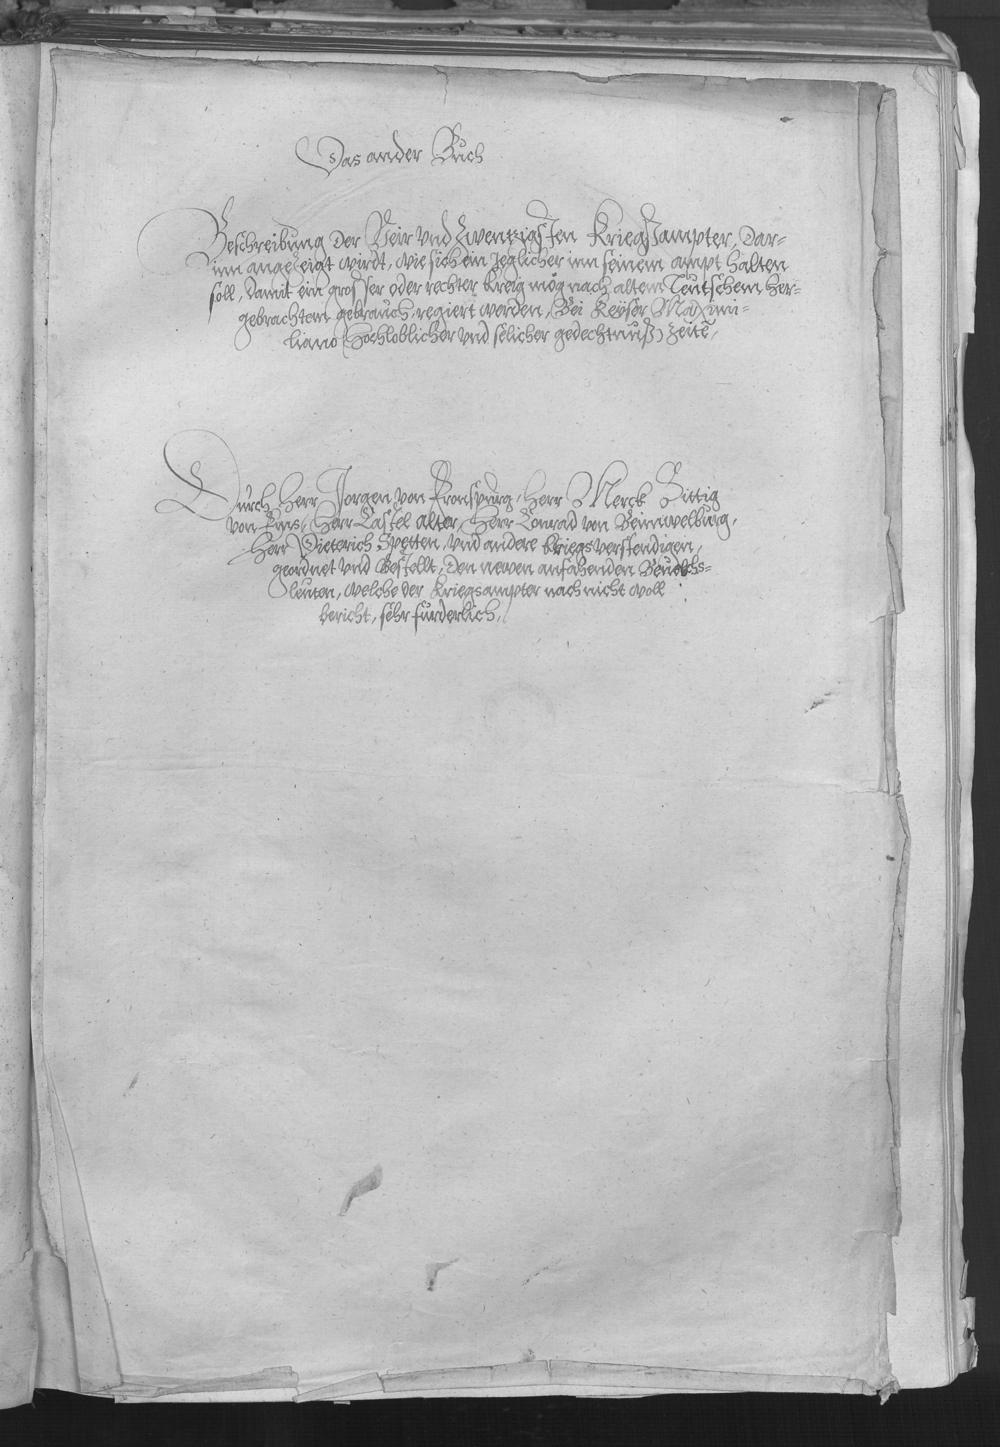 Das ander Buch
Beschreibung der Veir vnd Zwentzigsten Kriegsampter, Dar-
inn angezeigt wirdt, wie sich ein Jeglicher inn seinem ampt halten
soll, damit ein grosser oder rechter Kreig mög nach altem Teutschem her-
gebrachtem gebrauch, regiert werden, Bei Keyser Maximi-
liano (Hochloblicher vnd selicher gedechtnuß) Zeite,
Durch Herr Jorgen von Fronspurg, Herr Merck Sittig
von Embs, Herr Castel alter, Herr Conrad von Bemmelburg,
Herr Dieterich Spetten, vnd andere kriegsverstendigen,
geordnet vnd Bestellt, den newen anfahenden Beuelchs-
leuten, welche der Kriegsampter nach nicht woll
bericht, sehr fürderlich,